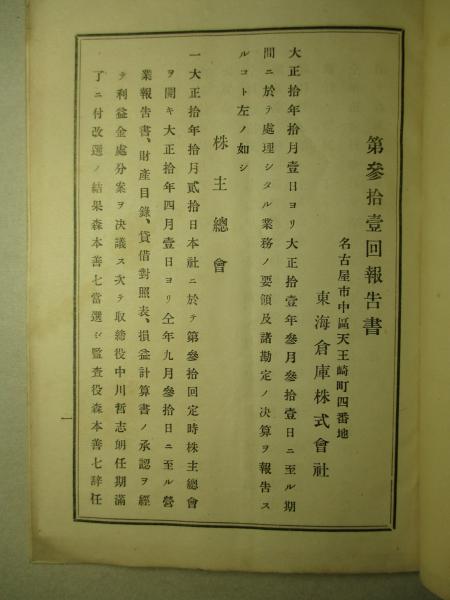 第參拾壹回報告書
名古屋市中區天王崎町四番地
東海倉庫株式會社
大正拾年拾月壹日ヨリ大正拾壹年參月參拾壹日ニ至ル期
間ニ於テ處理シタル業務ノ要領及諸勘定ノ決算ヲ報告ス
ルコト左ノ如シ
株主總會
一大正拾年拾月貳拾日本社ニ於テ第參拾回定時株主總會
ヲ開キ大正拾年四月壹日ヨリ仝年九月參拾日ニ至ル營
業報告書、財產目錄、貸借對照表、損益計算書ノ承認ヲ經
テ利益金處分案ヲ決議ス次テ取締役中川哲志朗任期滿
了ニ付改選ノ結果森本善七當選シ監査役森本善七辞任
一